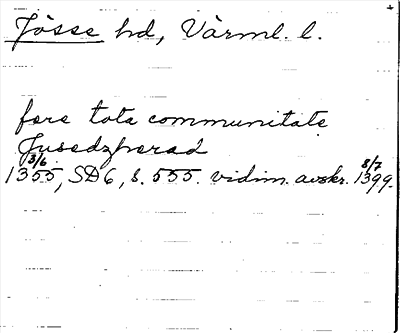 Jösse hd, Värml. l.
fere tota communitate
Jusedzherad
3/6 8/7
1355, SD 6, s. 555. vidim. avskr. 1399.